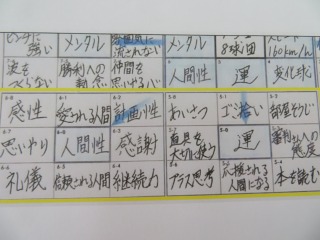 ピンチに強い メンタル 雰囲気に流されない メンタル 8球団 スピード160km/h
波をつくらない 勝利への執念 仲間を思いやる心 人間性 運 変化球
感性 愛される人間 計画性 あいさつ ゴミ拾い 部屋そうじ
思いやり 人間性 感謝 道具を大切に使う 運 審判さんへの態度
礼儀 信頼される人間 継続力 プラス思考 応援される人間になる 本を読む